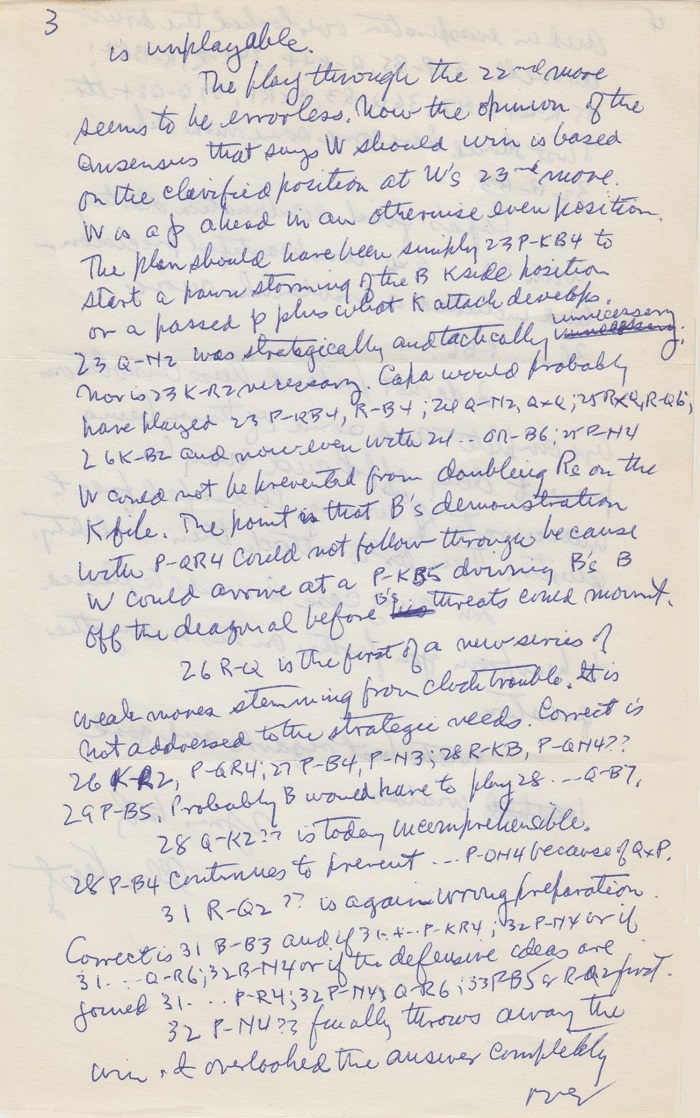 3
is unplayable.
The play through the 22nd move
seems to be errorless. Now the opinion of the
consensus that says W should win is based
on the clarified position at W's 23rd move.
W is a p ahead in an otherwise even position.
The plan should have been simply 23 P-KB4 to
start a pawn storming of the B Kside position
or a passed p plus what K attack develops.
23 Q-N2 was strategically and tactically unnecessary;
nor is 23 K-R2 necessary. Capa would probably
have played 23 P-KB4, R-B4; 24 Q-N2, QxQ; 25 RxQ, R-Q6;
26 K-B2 and now even with 24 .. QR-B6; 25 P-N4
W could not be prevented from doubling Rs on the
K file. The point is that B's demonstration
with P-QR4 could not follow through because
W could arrive at a P-KB5 driving B's B
off the diagonal before B's threats could mount.
26 R-Q is the first of a new series of
weak moves stemming from clock trouble. It is
not addressed to the strategic needs. Correct is
26 K-R2, P-QR4; 27 P-B4, P-N3; 28 R-KB, P-QN4??
29 P-B5. Probably B would have to play 28 ... Q-B7.
28 Q-K2?? is today incomprehensible.
28 P-B4 continues to prevent ... P-QN4 because of QxP.
31 R-Q2 ?? is again wrong preparation.
Correct is 31 B-B3 and if 31 ... P-KR4; 32 P-N4 or if
31 ... Q-R6; 32 B-N4 or if the defensive ideas are
joined 31 ... P-R4; 32 P-N4, Q-R6; 33 P-B5 or R-Q2 first.
32 P-N4?? finally throws away the
win. I overlooked the answer completely